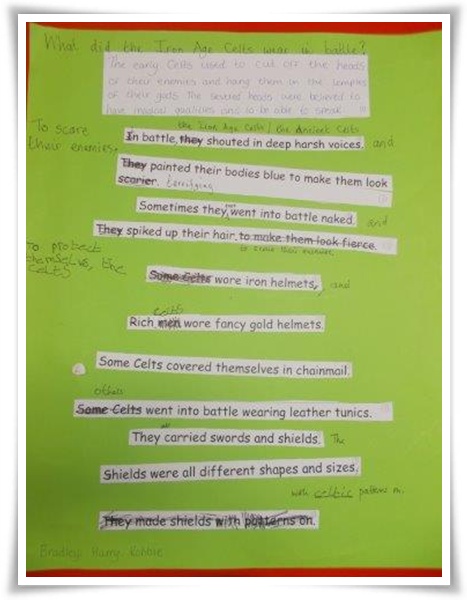 What did the Iron Age Celts wear in battle?
The early Celts used to cut off the heads
of their enemies and hang them in the temples
of their gods The severed heads were believed to
have magical qualities and to be able to speak
To scare
their enemies,
the Iron Age Celts / the Ancient Celts
In battle, they shouted in deep harsh voices. and
They painted their bodies blue to make them look
scarier. terrifying
Sometimes they went into battle naked. and
They spiked up their hair to make them look fierce.
to scare their enemies
To protect
themselves, the
Celts
Some Celts wore iron helmets, and
Celts
Rich men wore fancy gold helmets.
Some Celts covered themselves in chainmail.
Others
Some Celts went into battle wearing leather tunics.
all
They carried swords and shields. The
Shields were all different shapes and sizes.
with celtic patterns on.
They made shields with patterns on.
Bradley Harry Robbie